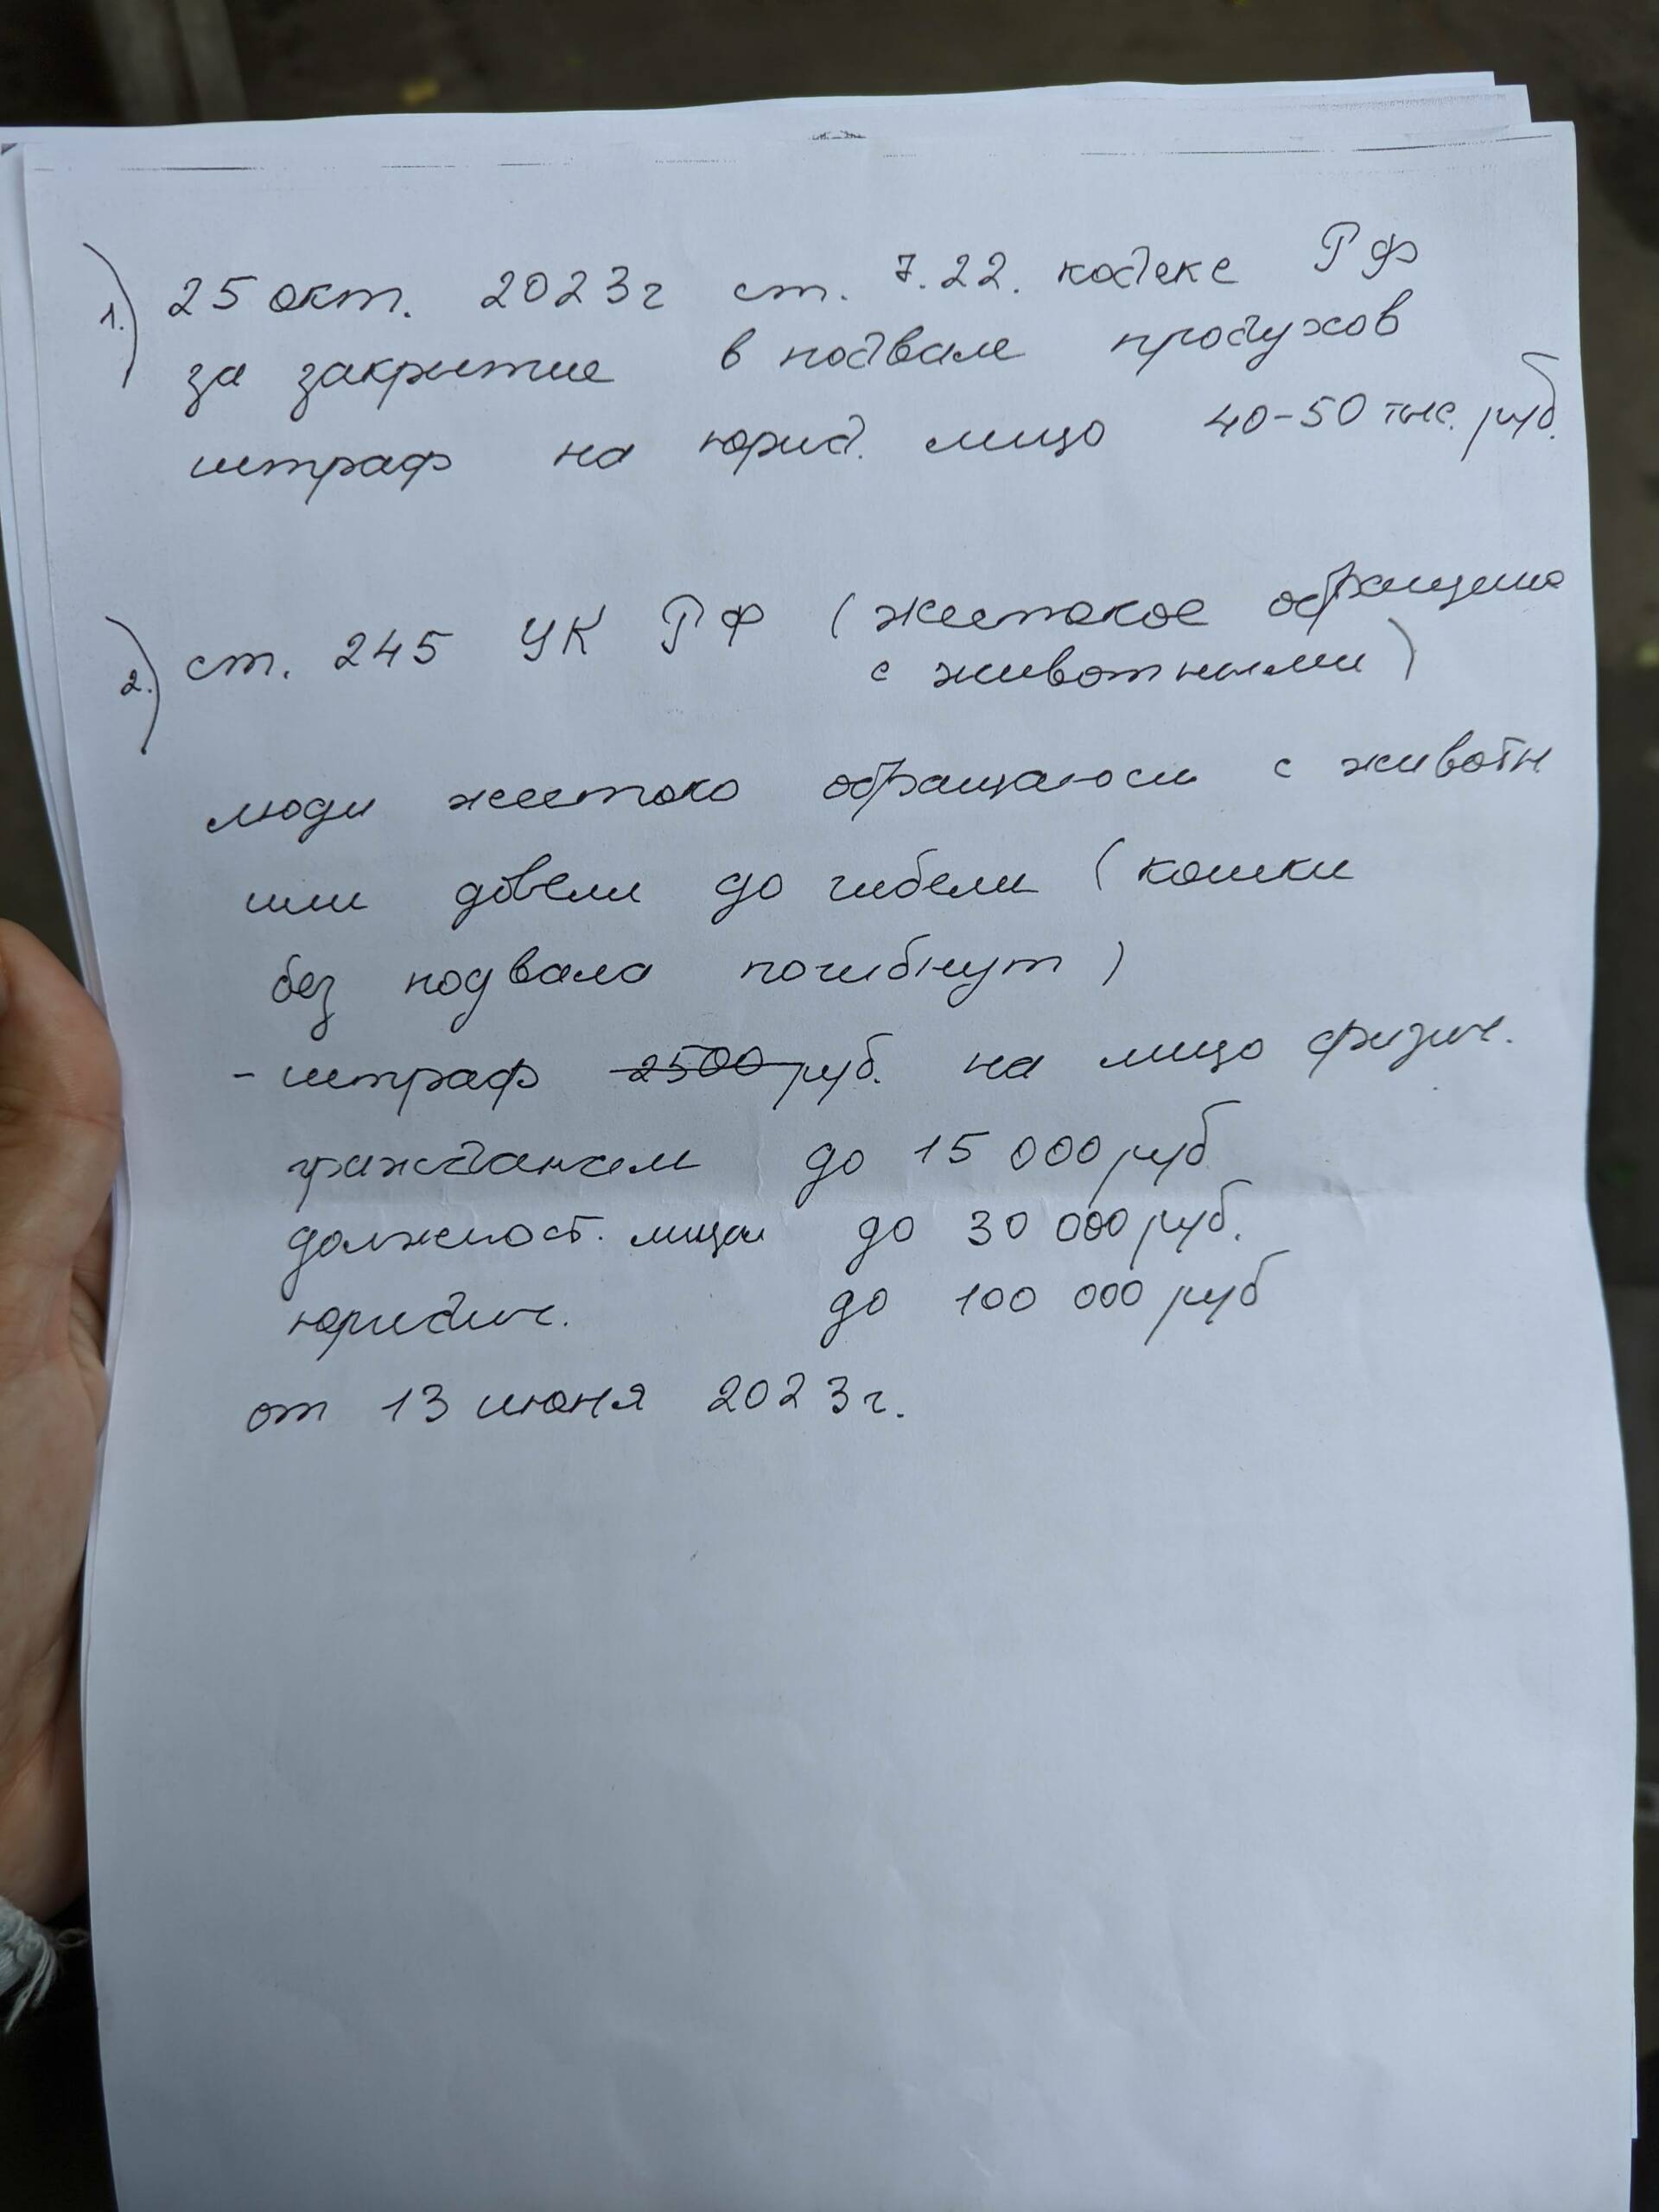 1.) 25 окт. 2023г ст. 7.22. кодекс РФ
за закрытие в подвале продухов
штраф на юрид. лицо 40-50 тыс. руб.
2.) ст. 245 УК РФ (жестокое обращение
с животными)
люди жестоко обращаются с животн
или довели до гибели (кошки
без подвала погибнут)
- штраф 2500 руб. на лицо физич.
гражданам до 15 000 руб
должност. лица до 30 000 руб.
юридич. до 100 000 руб
от 13 июня 2023г.